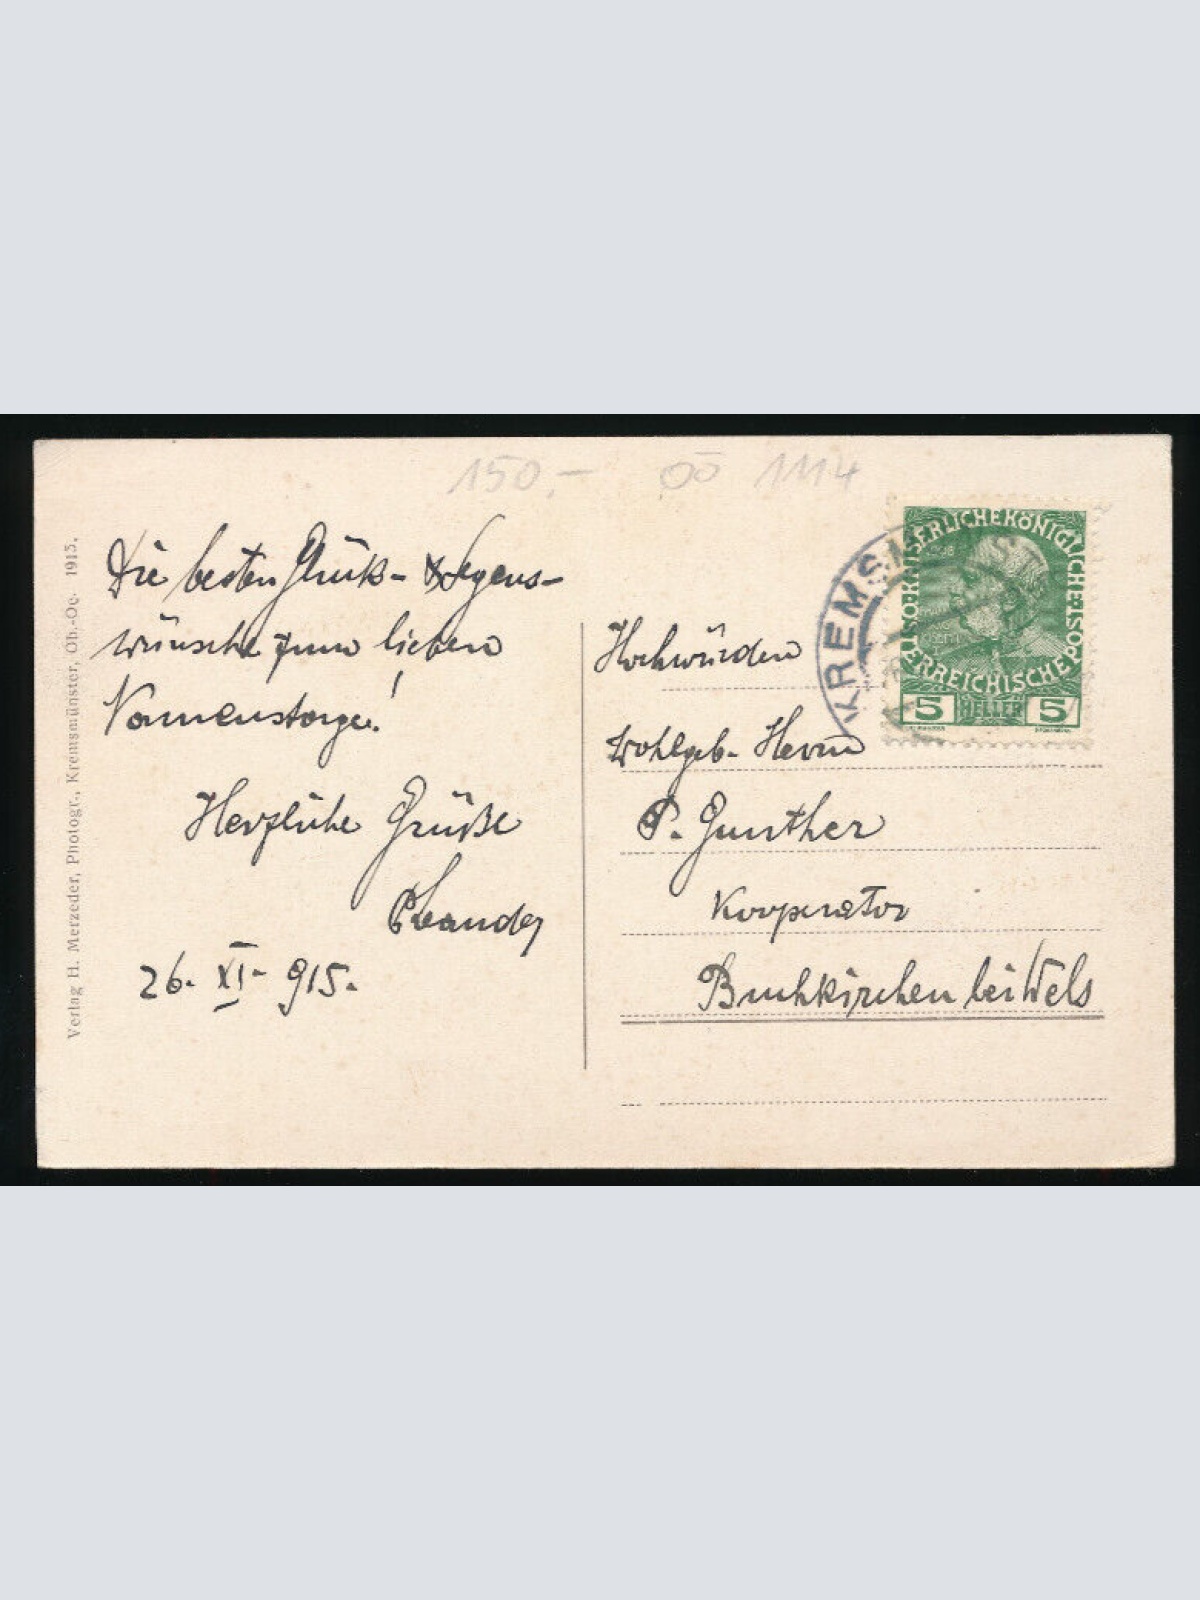 150,- OÖ 1114
Die besten Glück- & Segens-
wünsche zum lieben
Namenstage!
Herzliche Grüße
26. XI. 915.
Verlag H. Merzeder, Photogr., Kremsmünster, Ob.-Oe. 1915.
KREMSM
KAISERLICHE KÖNIGLICHE POST
ÖSTERREICHISCHE
5 HELLER 5
Hochwürden
Wohlgeb. Herrn
P. Gunther
Kooperator
Buchkirchen bei Wels